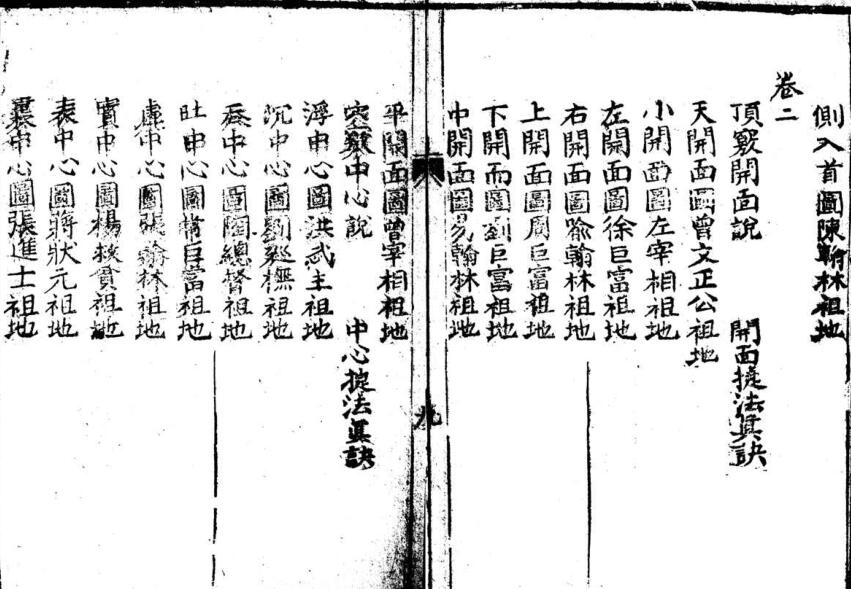 側入首圖陳翰林祖地
卷二
頂竅開面說 開面挨法真訣
天開面圖曾文正公祖地
小開面圖左宰相祖地
左開面圖徐巨富祖地
右開面圖俞翰林祖地
上開面圖周巨富祖地
下開面圖劉巨富祖地
中開面圖易翰林祖地
九
平開面圖曾宰相祖地
空竅中心說 中心挨法真訣
浮中心圖洪武主祖地
沉中心圖劉巡撫祖地
吞中心圖陶總督祖地
吐中心圖 巨富祖地
虛中心圖張翰林祖地
實中心圖楊救貧祖地
表中心圖蔣狀元祖地
裏中心圖張進士祖地